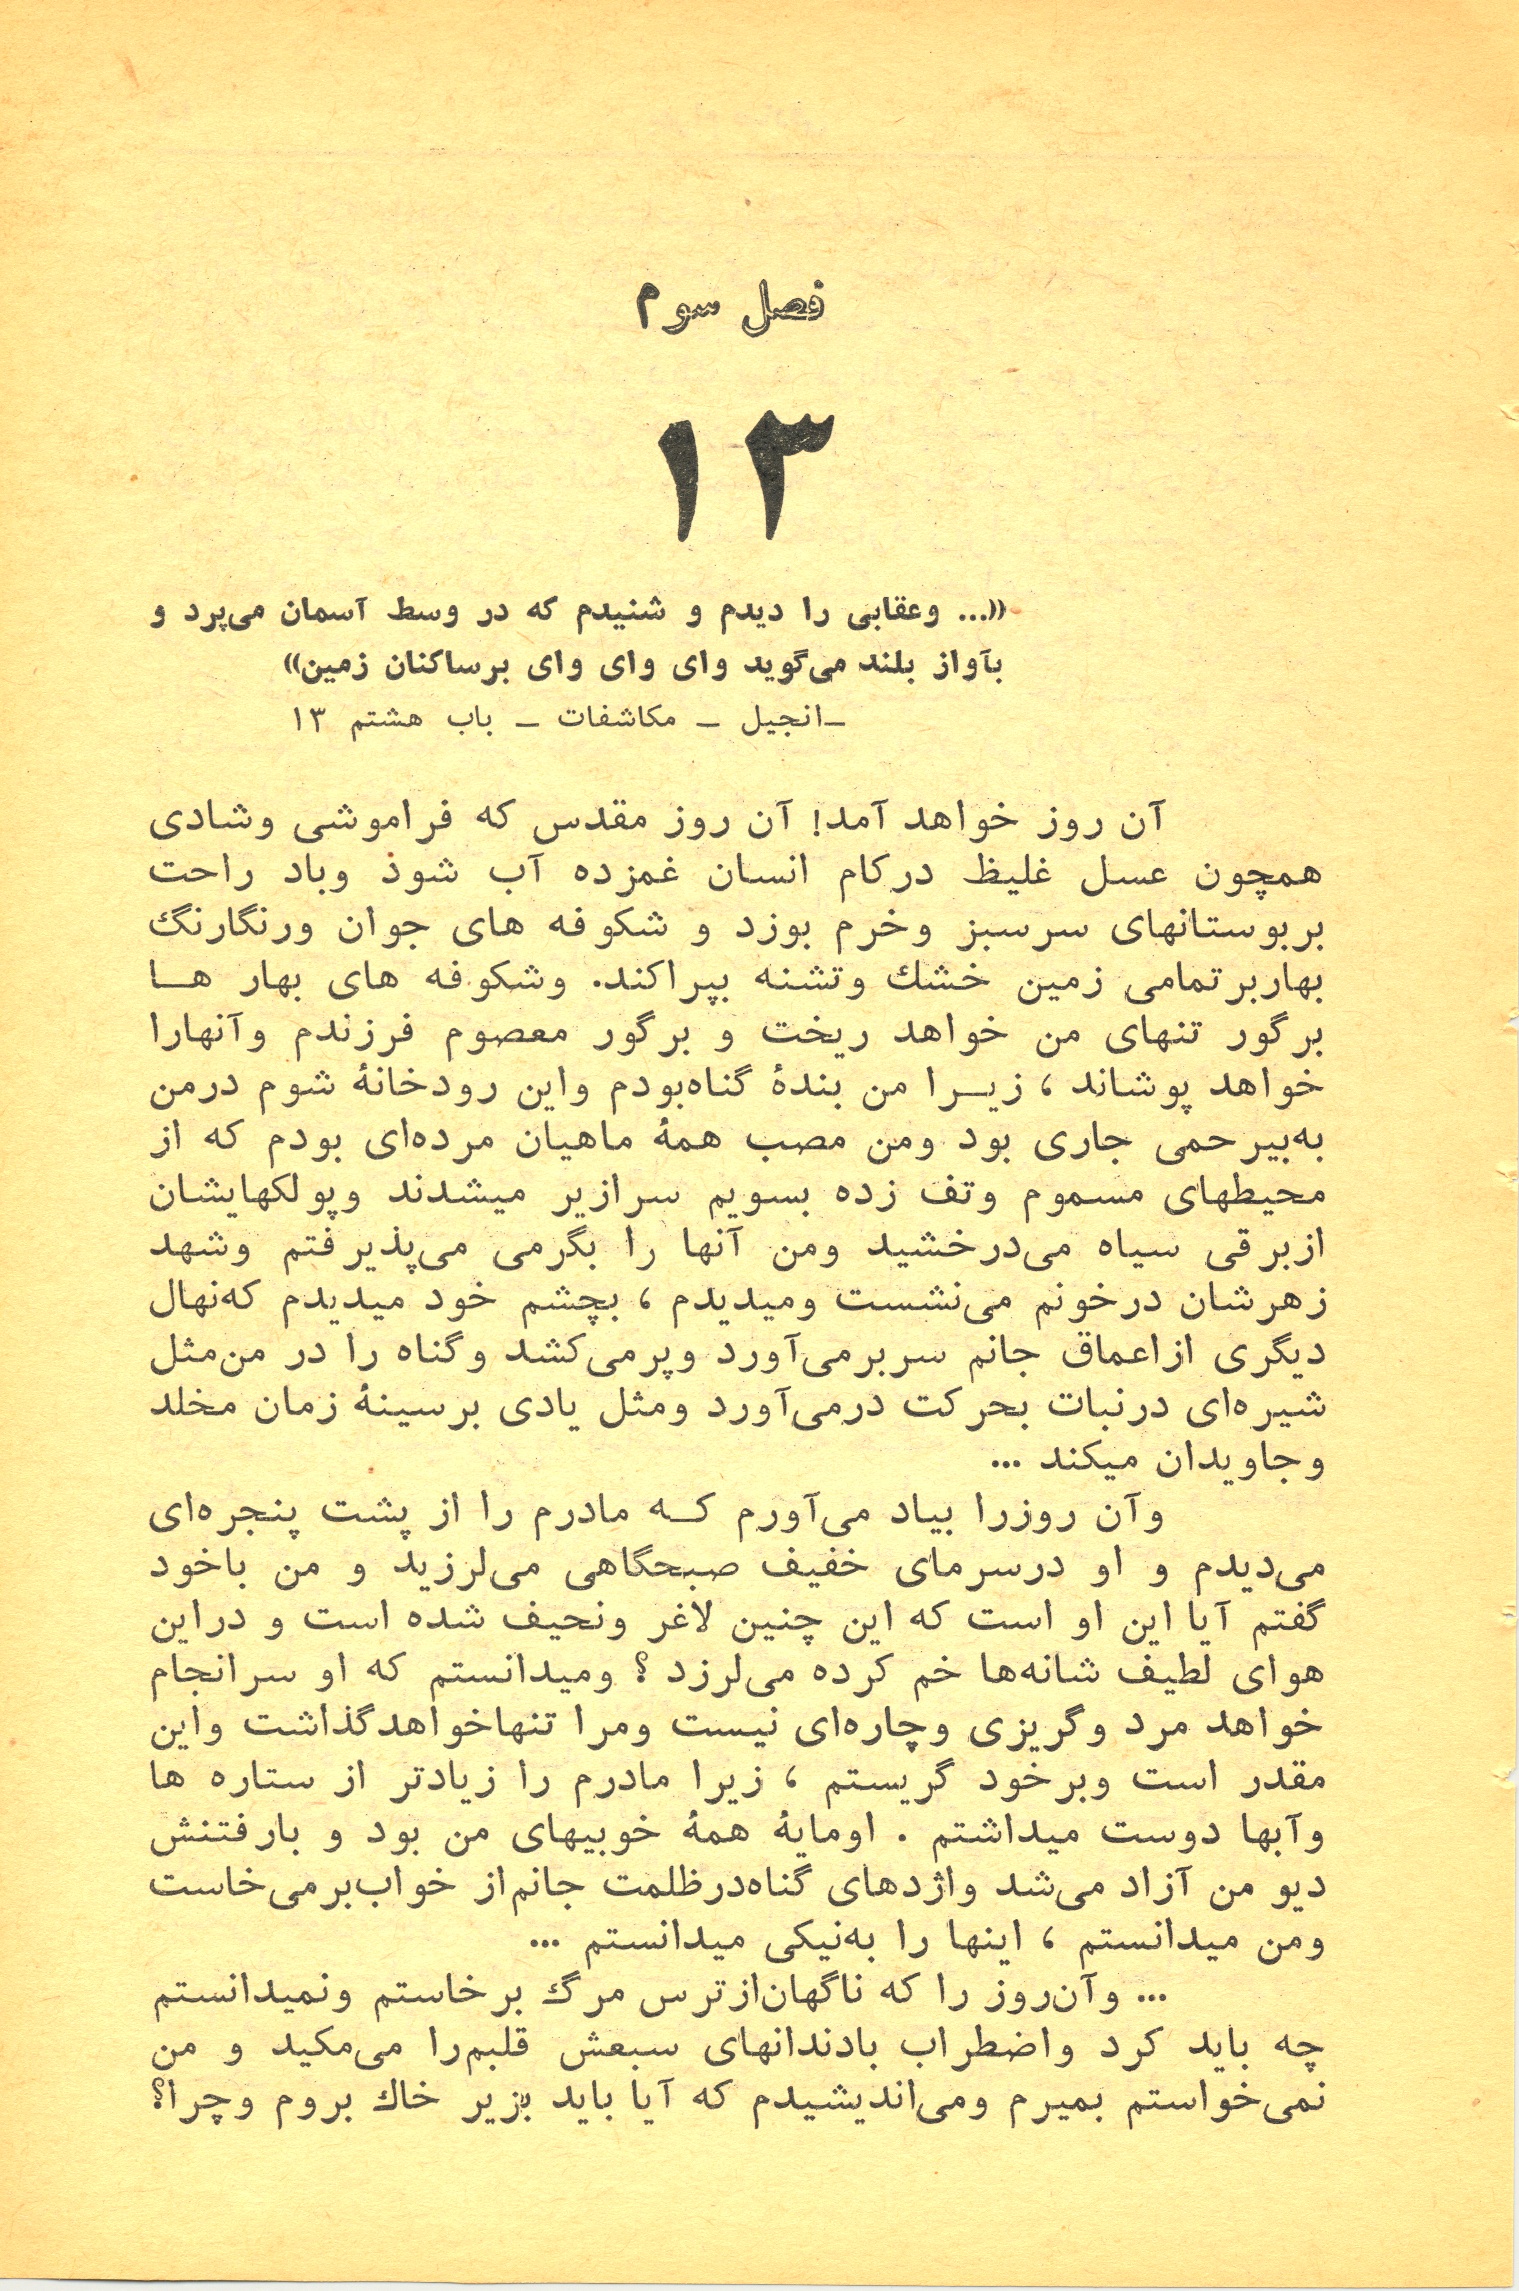 فصل سوم
۱۳
«... وعقابی را دیدم و شنیدم که در وسط آسمان می‌پرد و
بآواز بلند می‌گوید وای وای وای برساکنان زمین»
ـ‌انجیل ـ مکاشفات ـ باب هشتم ۱۳
آن روز خواهد آمد! آن روز مقدس که فراموشی وشادی
همچون عسل غلیظ درکام انسان غمزده آب شوذ وباد راحت
بربوستانهای سرسبز وخرم بوزد و شکوفه های جوان ورنگارنگ
بهاربرتمامی زمین خشك وتشنه بپراکند. وشکوفه های بهار هـا
برگور تنهای من خواهد ریخت و برگور معصوم فرزندم وآنهارا
خواهد پوشاند ، زیـرا من بندهٔ گناه‌بودم واین رودخانهٔ شوم درمن
به‌بیرحمی جاری بود ومن مصب همهٔ ماهیان مرده‌ای بودم که از
محیطهای مسموم وتف زده بسویم سرازیر میشدند وپولکهایشان
ازبرقی سیاه می‌درخشید ومن آنها را بگرمی می‌پذیرفتم وشهد
زهرشان درخونم می‌نشست ومیدیدم ، بچشم خود میدیدم که‌نهال
دیگری ازاعماق جانم سربرمی‌آورد وپرمی‌کشد وگناه را در من‌مثل
شیره‌ای درنبات بحرکت درمی‌آورد ومثل یادی برسینهٔ زمان مخلد
وجاویدان میکند ...
وآن روزرا بیاد می‌آورم کـه مادرم را از پشت پنجره‌ای
می‌دیدم و او درسرمای خفیف صبحگاهی می‌لرزید و من باخود
گفتم آیا این او است که این چنین لاغر ونحیف شده است و دراین
هوای لطیف شانه‌ها خم کرده می‌لرزد ؟ ومیدانستم که او سرانجام
خواهد مرد وگریزی وچاره‌ای نیست ومرا تنهاخواهدگذاشت واین
مقدر است وبرخود گریستم ، زیرا مادرم را زیادتر از ستاره ها
وآبها دوست میداشتم . اومایهٔ همهٔ خوبیهای من بود و بارفتنش
دیو من آزاد می‌شد واژدهای گناه‌درظلمت جانم‌از خواب‌برمی‌خاست
ومن میدانستم ، اینها را به‌نیکی میدانستم ...
... وآن‌روز را که ناگهان‌ازترس مرگ برخاستم ونمیدانستم
چه باید کرد واضطراب بادندانهای سبعش قلبم‌را می‌مکید و من
نمی‌خواستم بمیرم ومی‌اندیشیدم که آیا باید بزیر خاك بروم وچرا؟